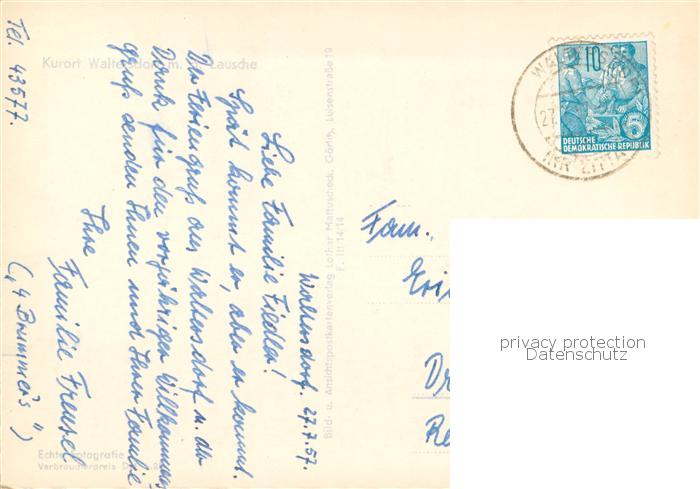 Kurort Waltersdorf m. Lausche
Tel. 43577.
Waltersdorf. 27.7.57.
Liebe Familie Fiedler!
Spät kommt er, aber er kommt.
Der Feriengruß aus Waltersdorf u. der
Dank für den vorjährigen Willkommens-
gruß senden Ihnen und Ihrer Familie
Ihre
Familie Freusel
(„4 Brummer's")
Echte Fotografie
Verbraucherpreis
Bild- u. Ansichtspostkartenverlag Lothar Mattuscheck, Görlitz, Luisenstraße 19
F. III/14/14
10
5
DEUTSCHE
DEMOKRATISCHE REPUBLIK
27.
Fam.
privacy protection
Datenschutz